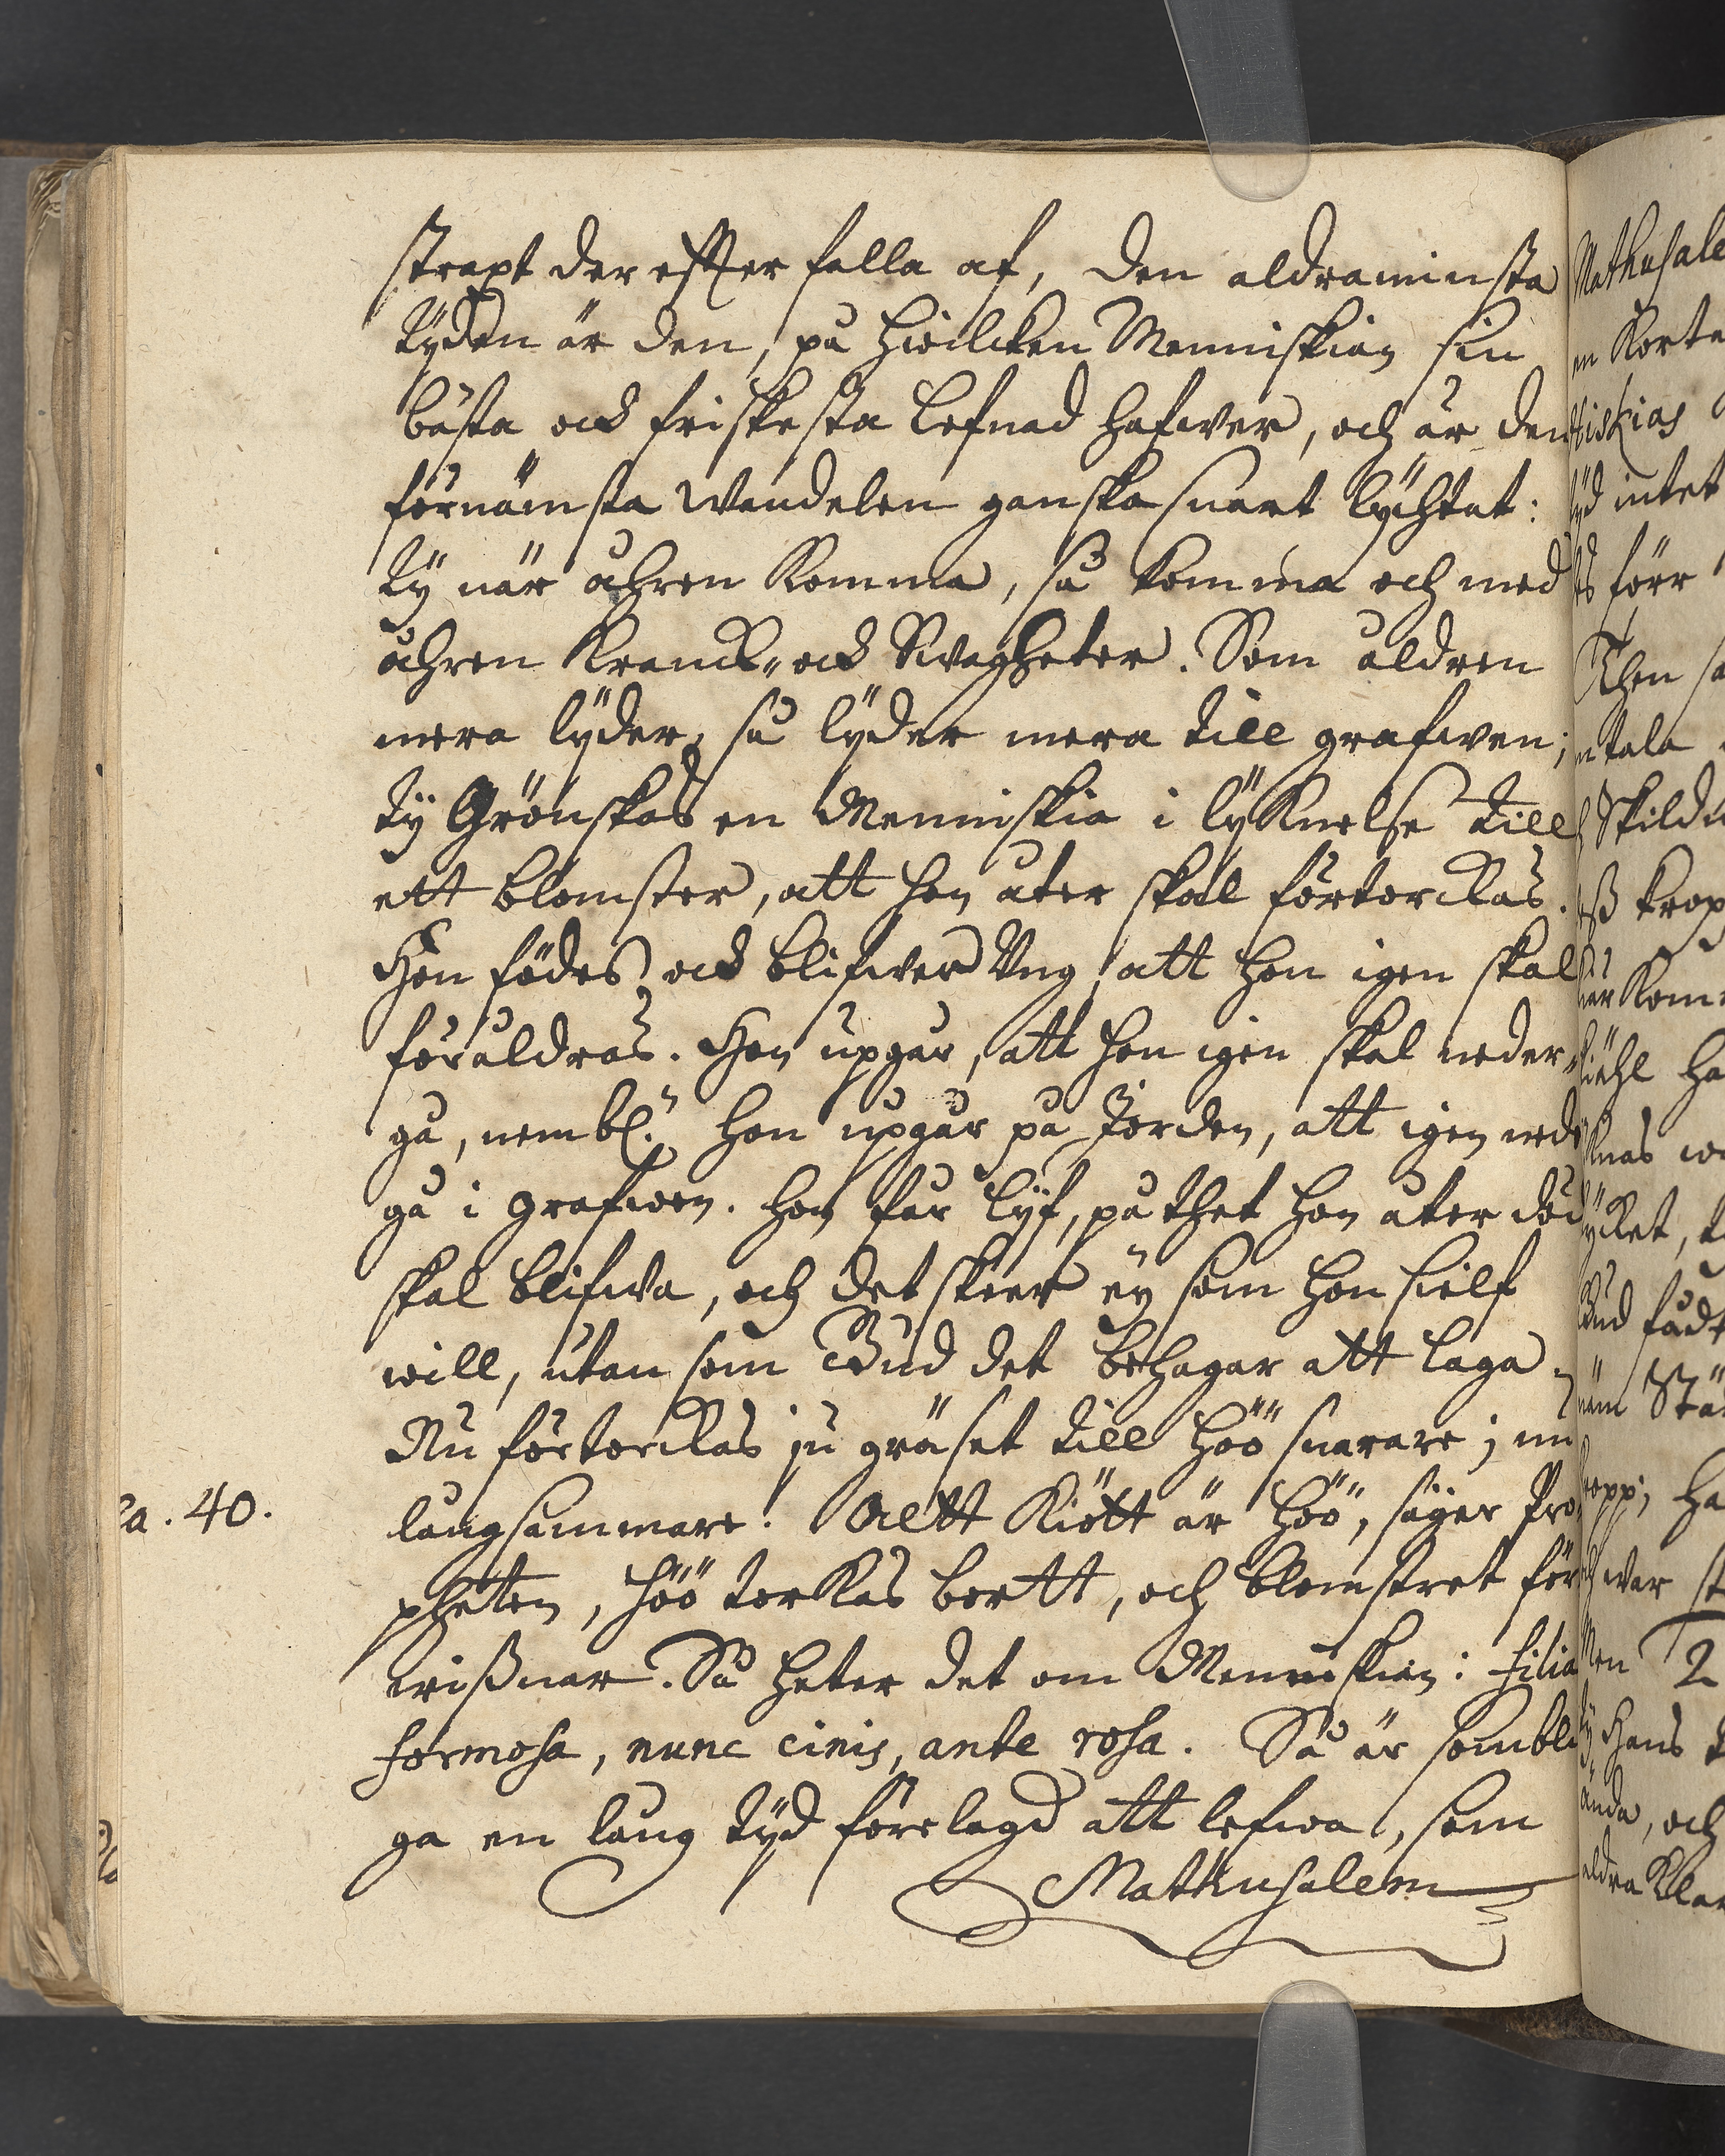 strapt der effter falla af, den aldraminsta
tÿden är den, på hwilcken Menniskian sin
bästa ock friskesta lefnad hafwer, och är den
förnämsta Wandelen ganska snart lychtat:
tÿ när åhren Komma, så komma och med
åhren Kranck- ock Swagheter. Som åldren
mera lÿder, så lÿder mera till grafwen;
tÿ Grönskas en Menniskia i lÿKnelse till
ett blomster, att hon åter skal förtorckas.
Hon födes ock blifwer Vng, att hon igen skal
föråldras. Hon upgår, att hon igen skal neder-
gå, nembl. hon upgår på Jorden, att igen ned
gå i grafwen. hon får lÿf, på thet hon åter död
skal blifwa, och det skeer eÿ som hon sielf
will, utan som Gud det behagar att laga.
Nu förtorckas ju gräset till höö snarare; nu
långsammare. Altt Kiött är höö, säger Pro-
pheten, höö torKas bortt, och blomstret för
wißnar. Så heter det om Menniskian: filia
formosa, nunc cinis, ante rosa. Så är sombli
ga en lång tÿd förelagd att lefwa, som
Mathusalem
a. 40.
Mathusale
en Korta
iskias
ÿd intet
förr
Then
tala
Skild
kropp
Kom
ha
nas
Gud
Stä
ha
war
Men
Hans
ända, och
aldra